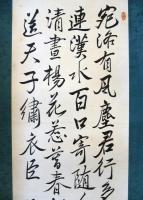 宛洛有風塵君行多
連漢水百口寄隨
清晝楊花惹暮春
送天子繡衣臣